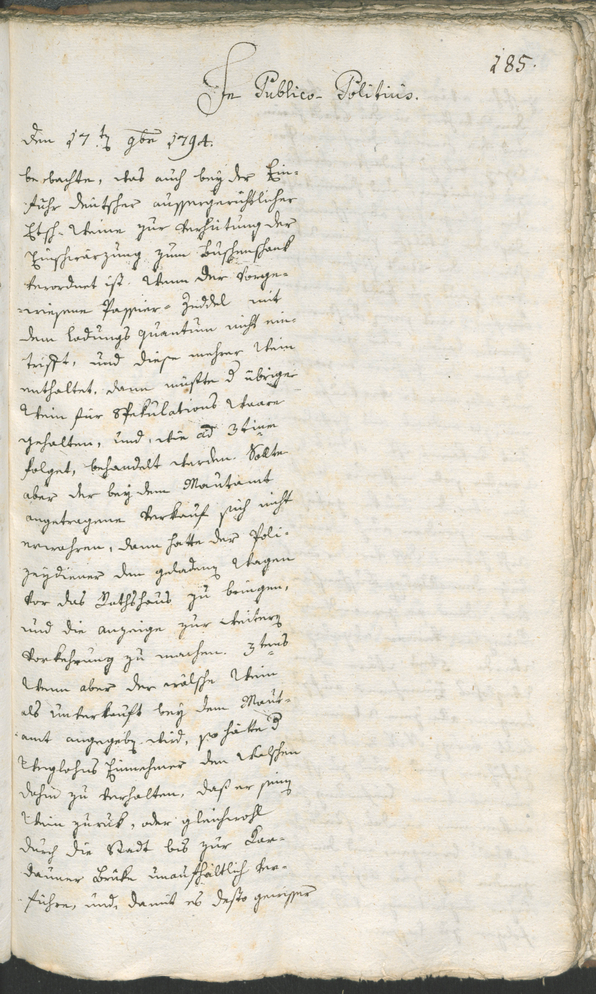 185.
In Publico-Politicis.
Den 17.t 9bre 1794.
beobachte, was auch bey der Ein-
fuhr deutscher aussergerichtlicher
Etsch-Weine zur Verhütung der
Einschwärzung zum Buschenschank
verordnet ist. Wenn der vorge-
wiesene Passier-Zeddel mit
dem Ladungs quantum nicht ein-
trifft, und diese mehrer Wein
enthaltet, dann müste d übrige
Wein für Spekulations Waare
gehalten, und, wie ad 3tium
folget, behandelt werden. Sollte
aber der bey dem Mautamt
angetragene Verkauf sich nicht
erwahren, dann hatte der Poli-
zeydiener den geladenen Wagen
vor das Rathshaus zu bringen,
und die Anzeige zur weitern
Vorkehrung zu machen. 3tens
Wenn aber der wälsche Wein
als unverkauft bey dem Maut-
amt angegeben wird, so hätte d
Weglohns Einnehmer den Welschen
dahin zu verhalten, daß er seinen
Wein zuruk, oder gleichwohl
durch die Stadt bis zur Kar-
dauner Bruke unaufhältlich ver-
führe, und, damit es desto gewisser